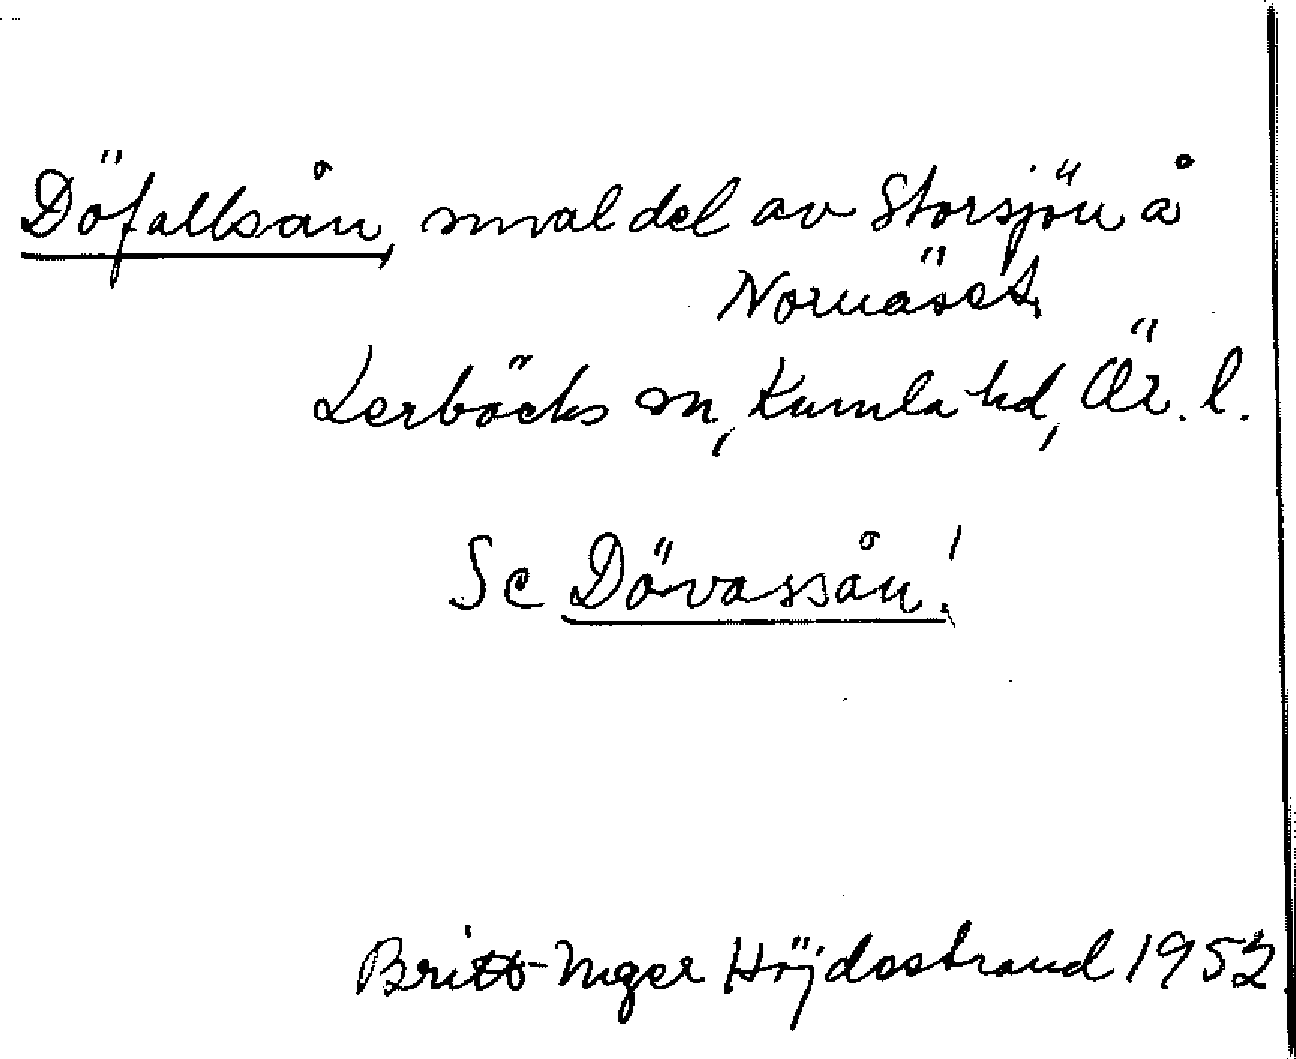 Döfallsån, smal del av Storsjön å
Nornäset.
Lerbäcks sn, Kumla hd, Ör. l.
Se Dövassån!
Britt-Inger Höjdestrand 1952